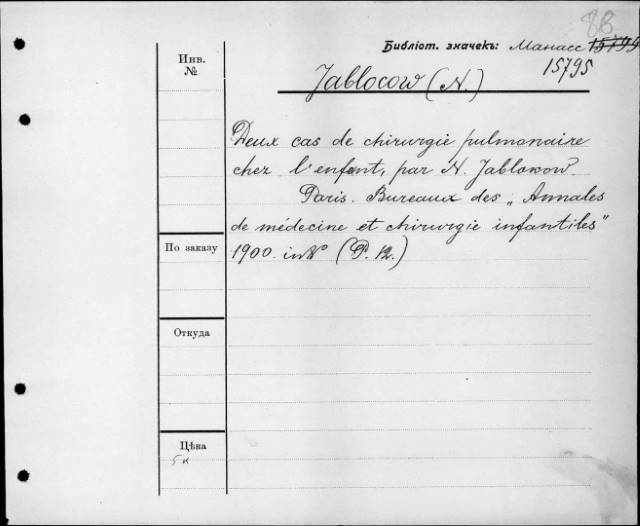 88
Библіот. значекъ: Манасс 15794
15795
Инв.
№
Jablocow (N.)
Deux cas de chirurgie pulmonaire
chez l'enfant, par N. Jablokow.
Paris. Bureaux des „Annales
de médecine et chirurgie infantiles"
По заказу
1900. in 8° (P. 12.)
Откуда
Цѣна
5 к